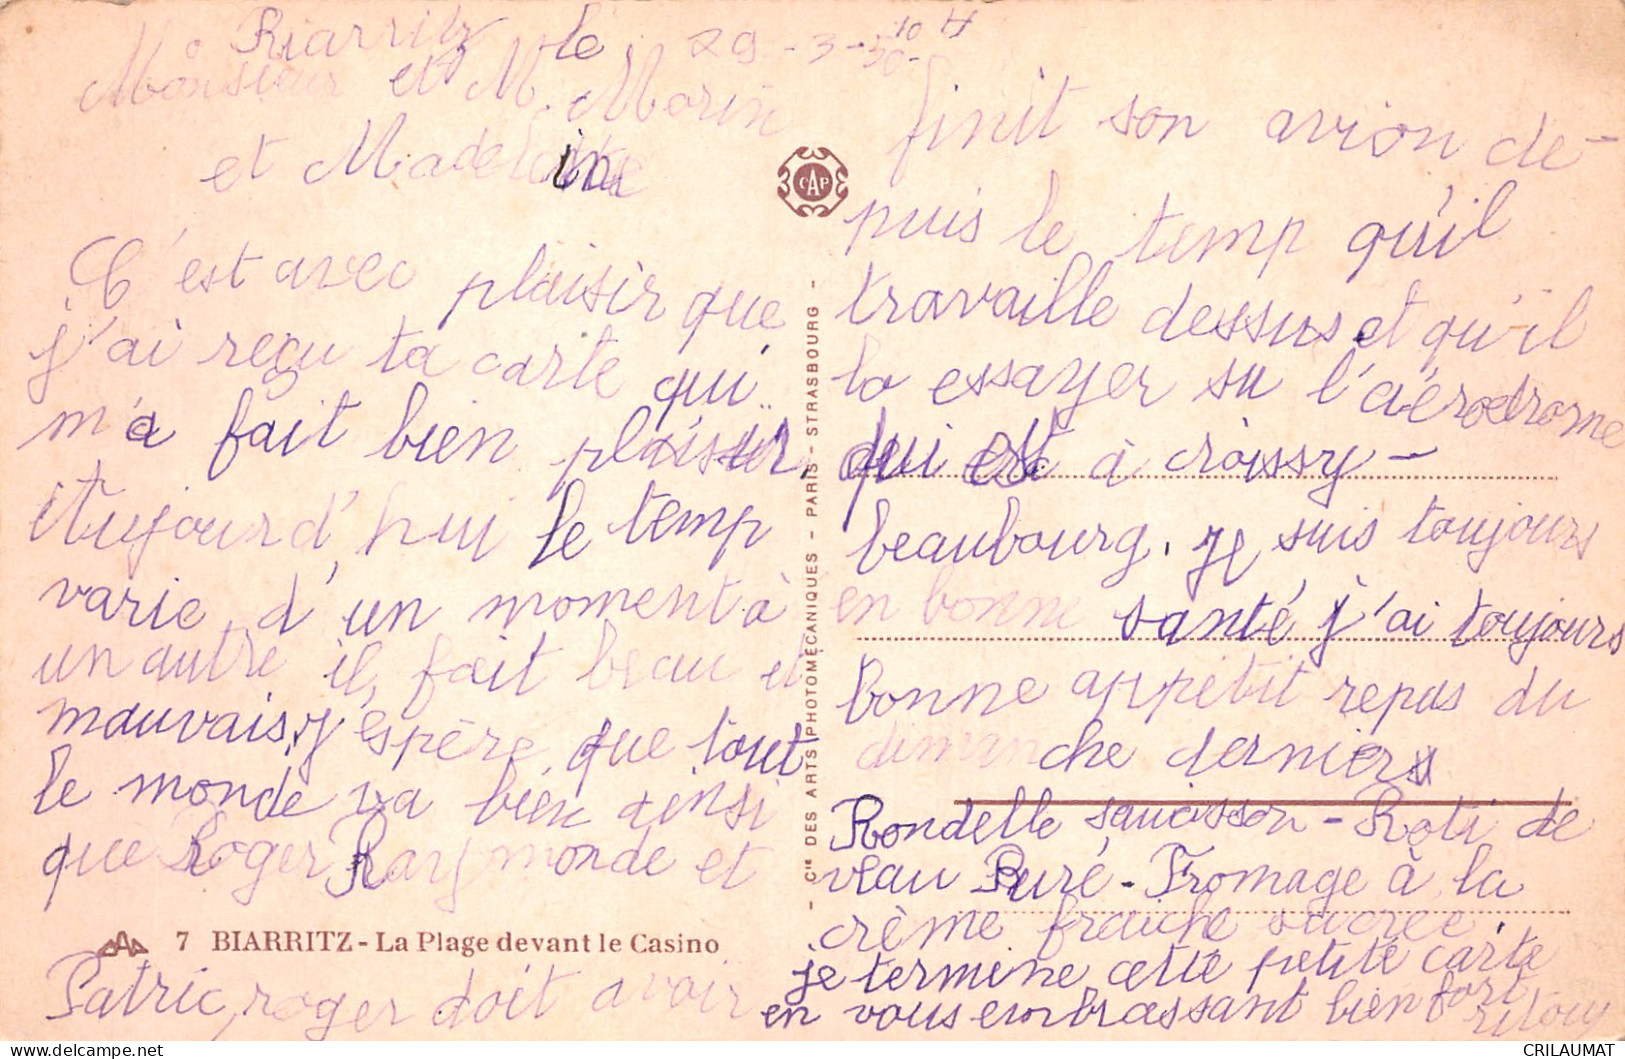 Biarritz le 29-3-50- 10 H
Monsieur et M. Morin
et Madeleine
C'est avec plaisir que
j'ai reçu ta carte qui
m'a fait bien plaisir.
Aujourd'hui le temp
varie d'un moment à
un autre il fait beau et
mauvais j'espère que tout
le monde va bien ainsi
que Roger Raymonde et
7 BIARRITZ - La Plage devant le Casino
Patric, roger doit avoir
CAP
- Cie DES ARTS PHOTOMÉCANIQUES - PARIS - STRASBOURG -
finit son avion de-
puis le temp qu'il
travaille dessus et qu'il
la essayer su l'aérodrome
qui est à croissy-
beaubourg. je suis toujours
en bonne santé j'ai toujours
bonne appetit repas du
dimanche derniers
Rondelle saucisson - Roti de
veau Puré - Fromage à la
crème fraiche sucrée.
je termine cette petite carte
en vous embrassant bien fort
CRILAUMAT